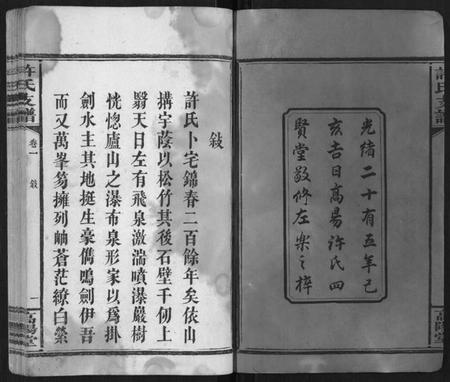 許氏支譜
光緒二十有五年己
亥吉日高易許氏四
賢堂敬修左樂之梓
高陽堂
敍
許氏卜宅錦春二百餘年矣依山
搆宇蔭以松竹其後石壁千仞上
翳天日左有飛泉激湍噴瀑嚴樹
恍惚廬山之瀑布泉形家以爲掛
劍水主其地挺生豪儁鳴劍伊吾
而又萬峯芴擁列岫蒼茫繚白縈
許氏支譜
卷一
敍
一
高陽堂